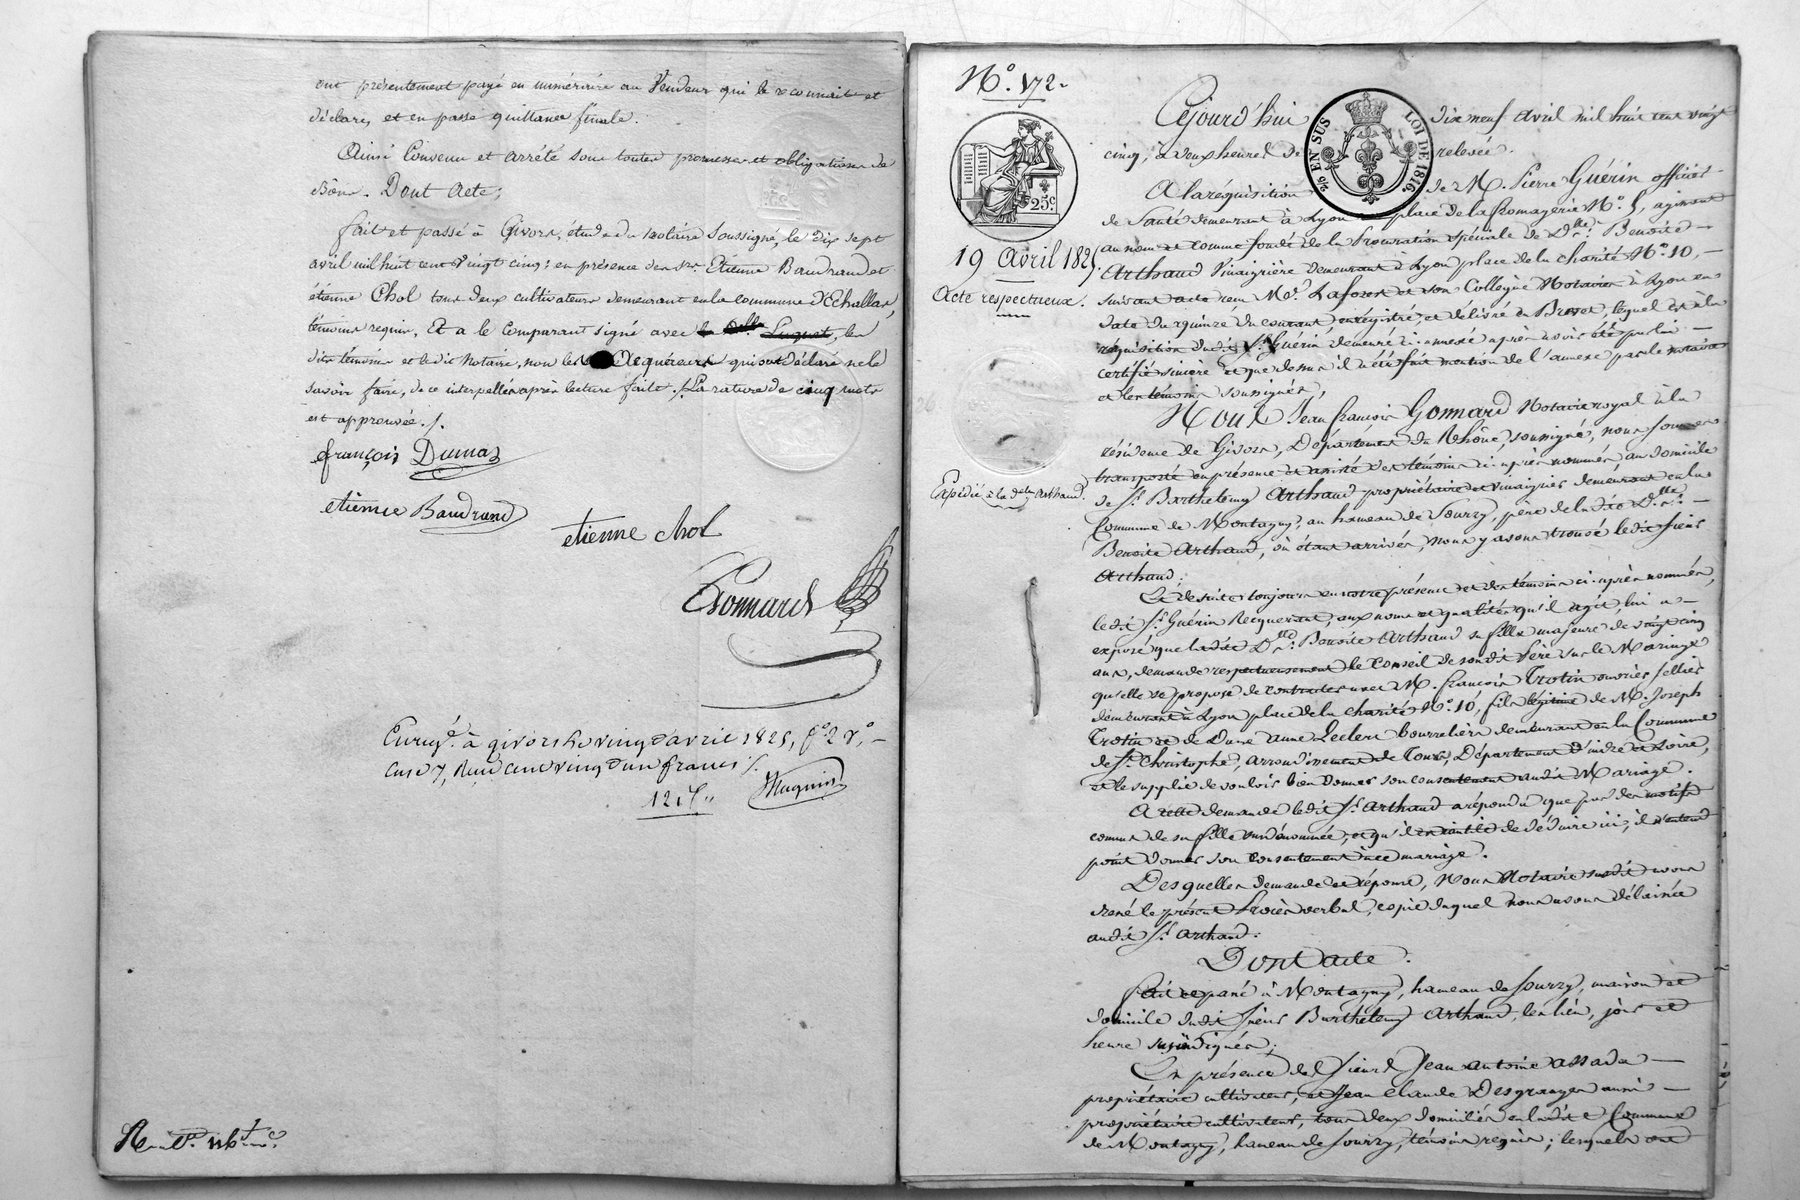 ont présentement payé en numéraire au Vendeur qui le reconnait et
déclare, et en passe quittance finale.
Ainsi Convenu et arrêté sous toutes promesses et obligations de
Dont Acte;
fait et passé à Givors, étude du Notaire Soussigné, le dix sept
avril mil huit cent vingt cinq; en présence des Srs. Etienne Baudrand et
étienne Chol tous deux cultivateurs demeurant en la commune d'Echallas,
témoins requis, Et a le Comparant signé avec les
dits témoins et le dit Notaire, non les Acquéreurs qui ont déclaré ne le
savoir faire, de ce interpellés après lecture faite ./. La rature de cinq mots
est approuvée ./.
françois Dumas
etienne Baudrand
etienne chol
Gonnard
Enregé. à givors le vingt d'avril 1825, fo. 2 vo,
case 7, Reçu cent vingt un francs
121f "
N° 172.
25c.
EN SUS LOI DE 1816.
19 Avril 1825.
Acte respectueux.
Expédié à la dlle Arthaud.
Cejourd'hui dix neuf Avril mil huit cent vingt
cinq, à deux heures de relevée.
A la réquisition de M. Pierre Guérin officier
de Santé demeurant à Lyon place de la fromagerie N° 5, agissant
au nom et comme fondé de la Procuration spéciale de Dlle. Benoite
Arthaud Vinaigrière demeurant à Lyon place de la charité N° 10,
suivant acte reçu Me. Laforest et son Collègue Notaires à Lyon en
date du quinze du courant, enregistré, et délivré en Brevet, lequel est à la
réquisition dudit Sr. Guérin demeuré ci-annexé après avoir été par lui
certifié sincère et que dessus il a été fait mention de l'annexe par le notaire
et les témoins soussignés,
Nous Jean françois Gonnard Notaire royal à la
résidence de Givors, Département du Rhône, soussigné, nous sommes
transporté en présence et assisté des témoins ci-après nommés, au domicile
de Sr. Barthelemy Arthaud propriétaire et vinaigrier demeurant en la
Commune de Montagny, au hameau de Sourzy, père de la dite Dlle.
Benoite Arthaud, où étant arrivés, nous y avons trouvé le dit Sieur
Arthaud;
Et de suite toujours en notre présence et des témoins ci-après nommés,
le dit Sr. Guérin Requérant, aux noms et qualités qu'il agit, lui a
exposé que la dite Dlle. Benoite Arthaud sa fille majeure de vingt cinq
ans, demande respectueusement le Conseil de son dit Père sur le Mariage
qu'elle se propose de contracter avec M. françois Trotin ouvrier sellier
demeurant à Lyon place de la charité N° 10, fils légitime de M. Joseph
Trotin et de Dame Anne Leclerc bourreliers demeurant en la Commune
de St. Christophe, arrondissement de Tours, Département d'indre et Loire,
et le supplie de vouloir bien donner son consentement audit Mariage.
A cette demande le dit Sr. Arthaud a répondu que par des motifs
connus de sa fille susdénommée, et qu'il est inutile de déduire ici, il n'entend
point donner son consentement à ce mariage.
Desquelles demande et réponse, Nous Notaire susdit avons
dressé le présent Procès verbal, copie duquel nous avons délaissée
audit Sr. Arthaud.
Dont acte.
fait et passé à Montagny, hameau de Sourzy, maison et
domicile dudit Sieur Barthelemy Arthaud, les lieu, jour et
heure susindiqués;
En présence des Sieurs Jean Antoine Assada
propriétaire cultivateur, et Jean Claude Desgranges aussi
propriétaire cultivateur, tous deux domiciliés en la dite Commune
de Montagny, hameau de Sourzy, témoins requis; lesquels ont